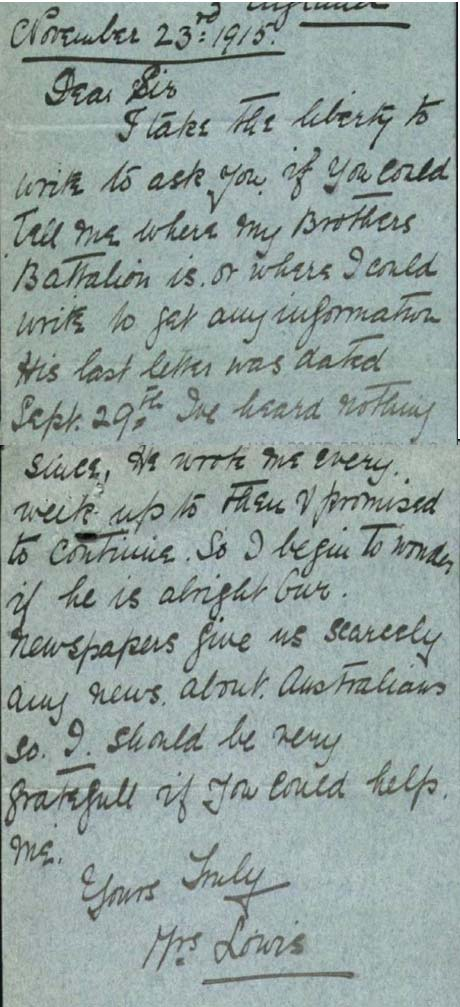 England
November 23rd: 1915.
Dear Sir
I take the liberty to
write to ask you, if you could
Tell me where my Brothers
Battalion is. or where I could
write to get any information
His last letter was dated
Sept. 29th. I've heard nothing
since, He wrote me every.
week up to then & promised
to continue. So I begin to wonder
if he is alright Our.
newspapers give us scarcely
any news. about. Australians
so. I. should be very
gratefull if you could help.
me.
Yours Truly
Mrs Lewis